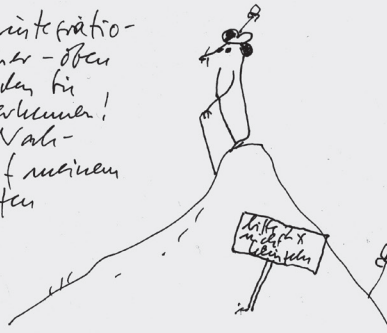 integratio-
ner - oben
den Sie
erkennen!
Nach-
f meinem
ten
bitte
nicht x